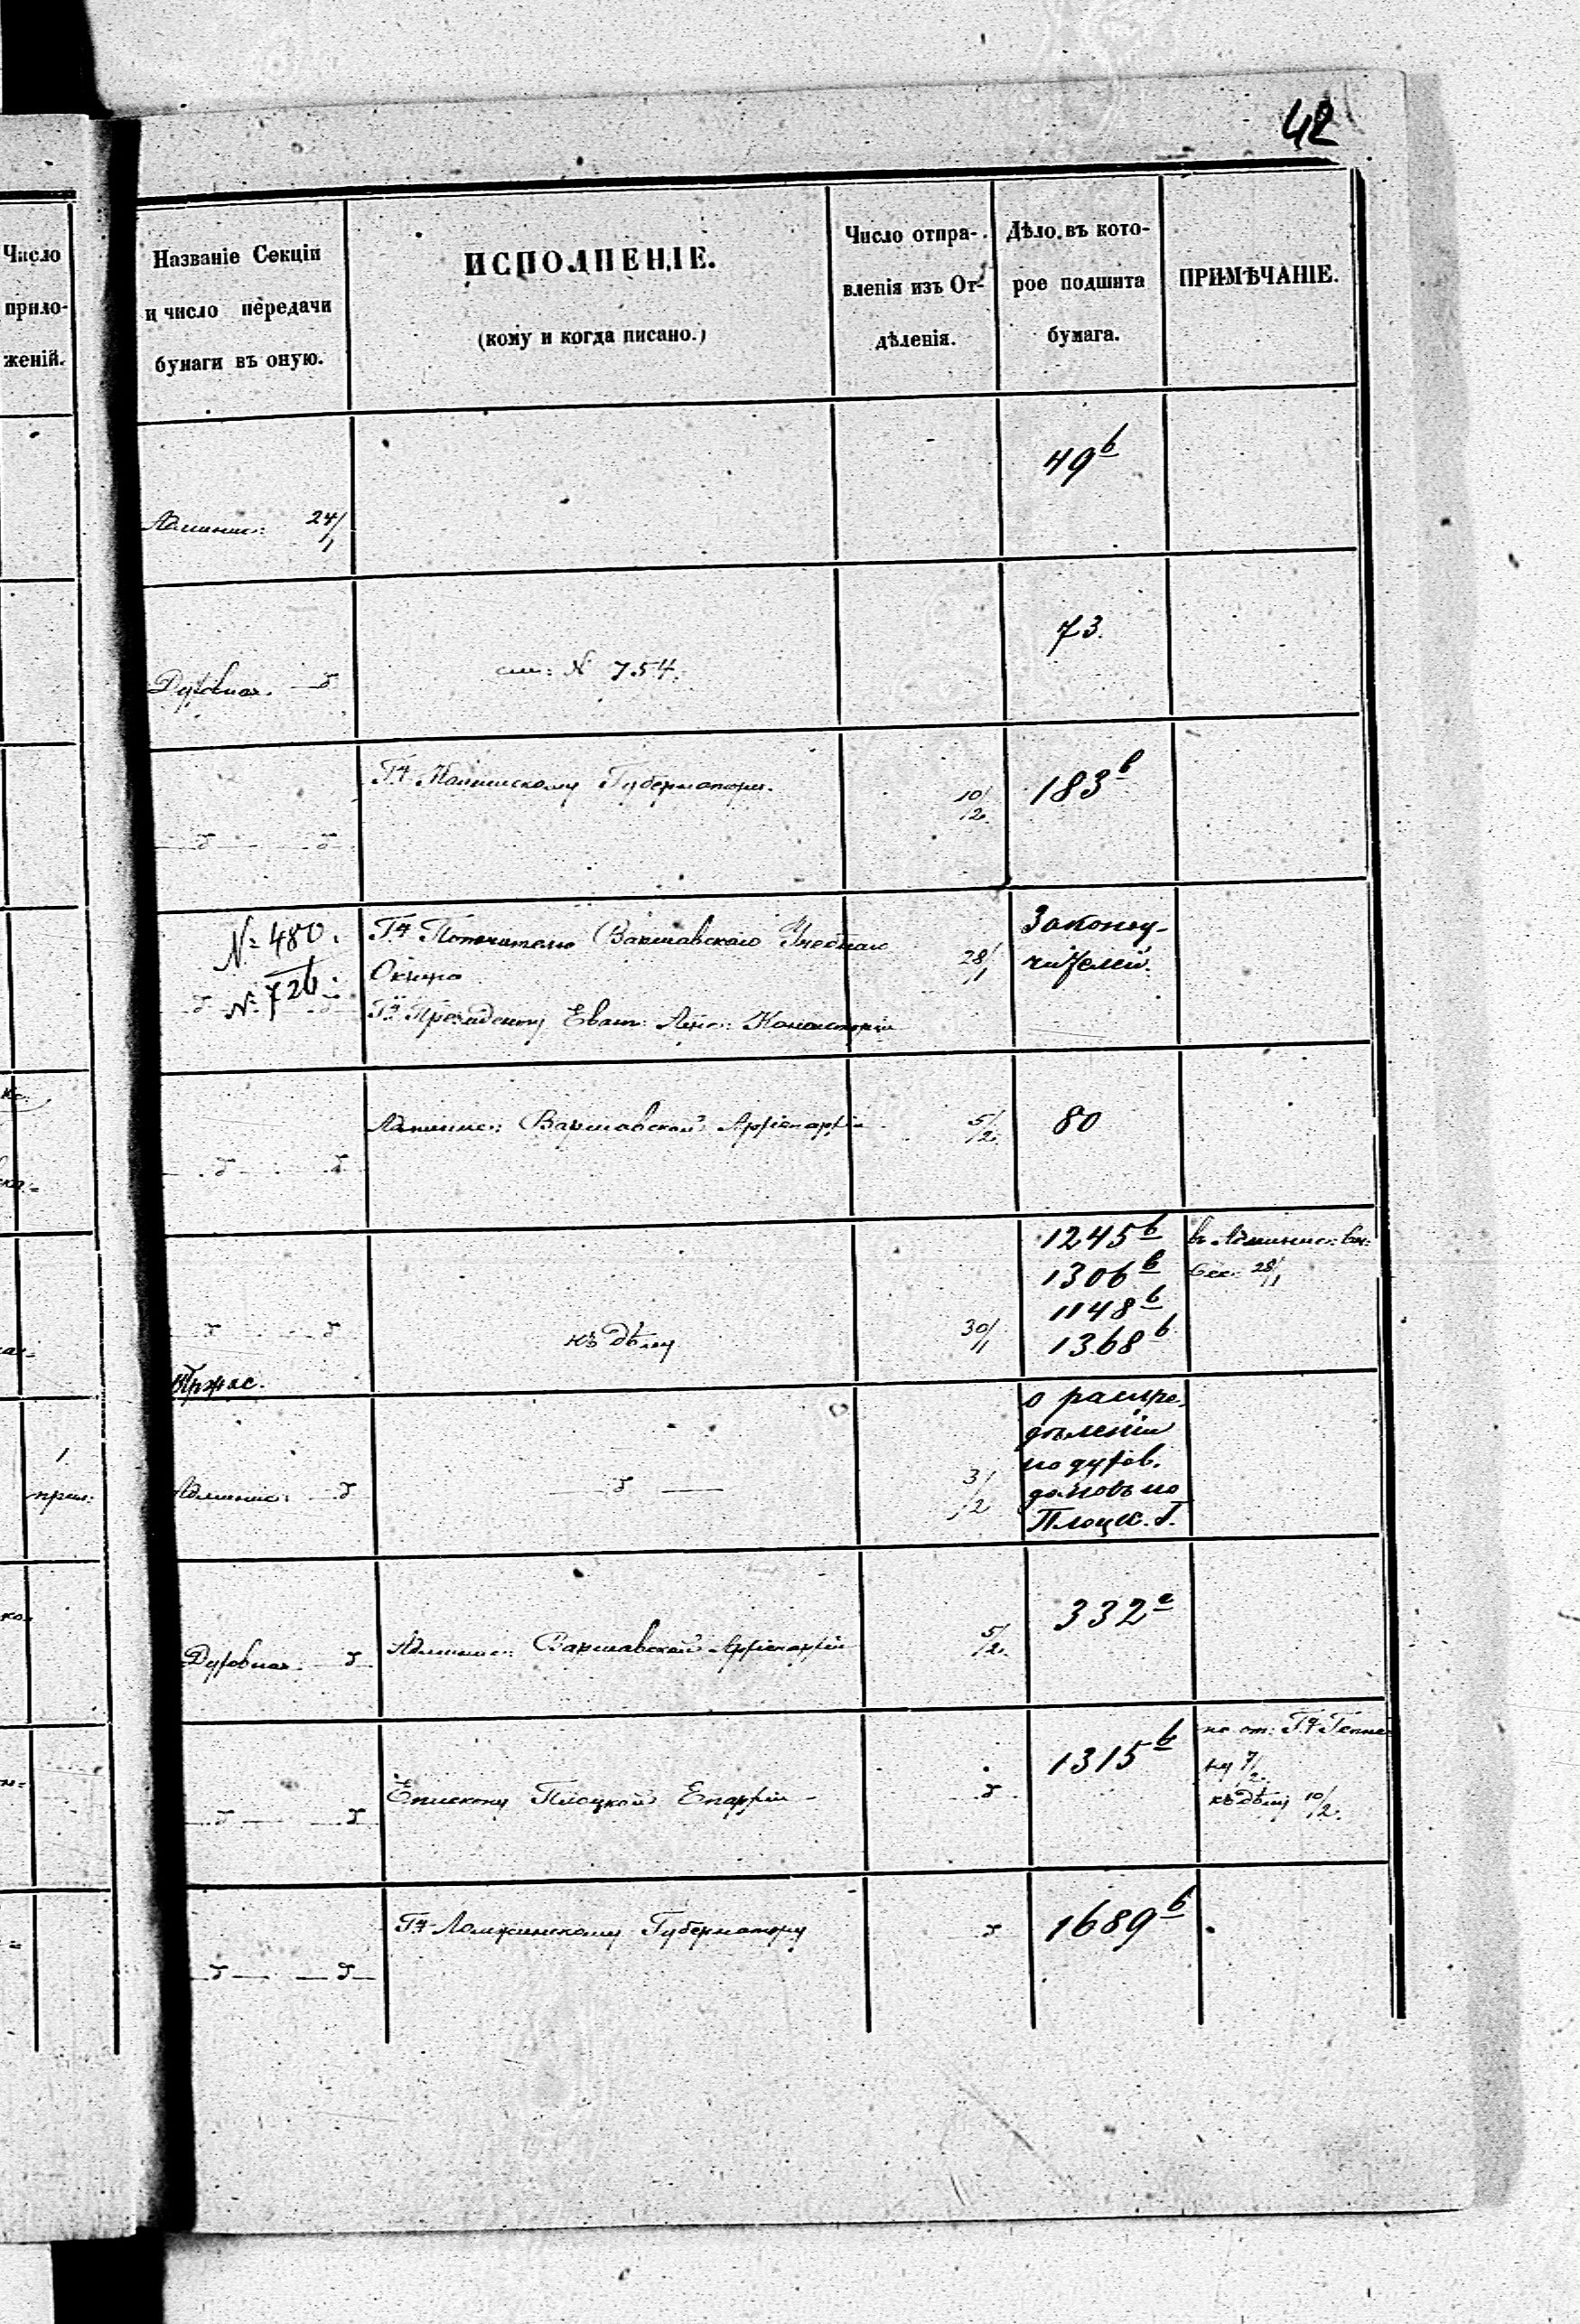 42
Число
прило-
женій.
Названіе Секціи
и число передачи
бумаги въ оную.
ИСПОЛНЕНІЕ.
(кому и когда писано.)
Число отпра-
вленія изъ От-
дѣленія.
Дѣло, въ кото-
рое подшита
бумага.
ПРИМѢЧАНІЕ.
Админис: 24/1
49в
Духовная. —д
см: № 754.
73.
Губернатору.
10/2.
183в
—д— —д—
№ 480.
№ 726.
Г.у Попечителю Варшавскаго Учебнаго
Округа
Г.у Президенту Еванг: Авгс: Консисторіи
28/1
Законоу-
чителей.
Админис: Варшавской Архіепархіи
5/2.
80
—д— —д—
1245в
1306в
1148в
1368в
въ Админис:
28/1
—д— —д—
къ дѣлу
30/1
1
прил:
Админис: —д
—д—
3/2
о распре-
дѣленіи
по духов.
домовъ по
Плоцк. Г.
Духовная. —д
Админис: Варшавской Архіепархіи
5/2.
332е
—д— —д
Епископу Плоцкой Епархіи
—д
1315в
7/2.
къ дѣлу 10/2.
—д— —д—
Г.у Ломжинскому Губернатору
д
1689в